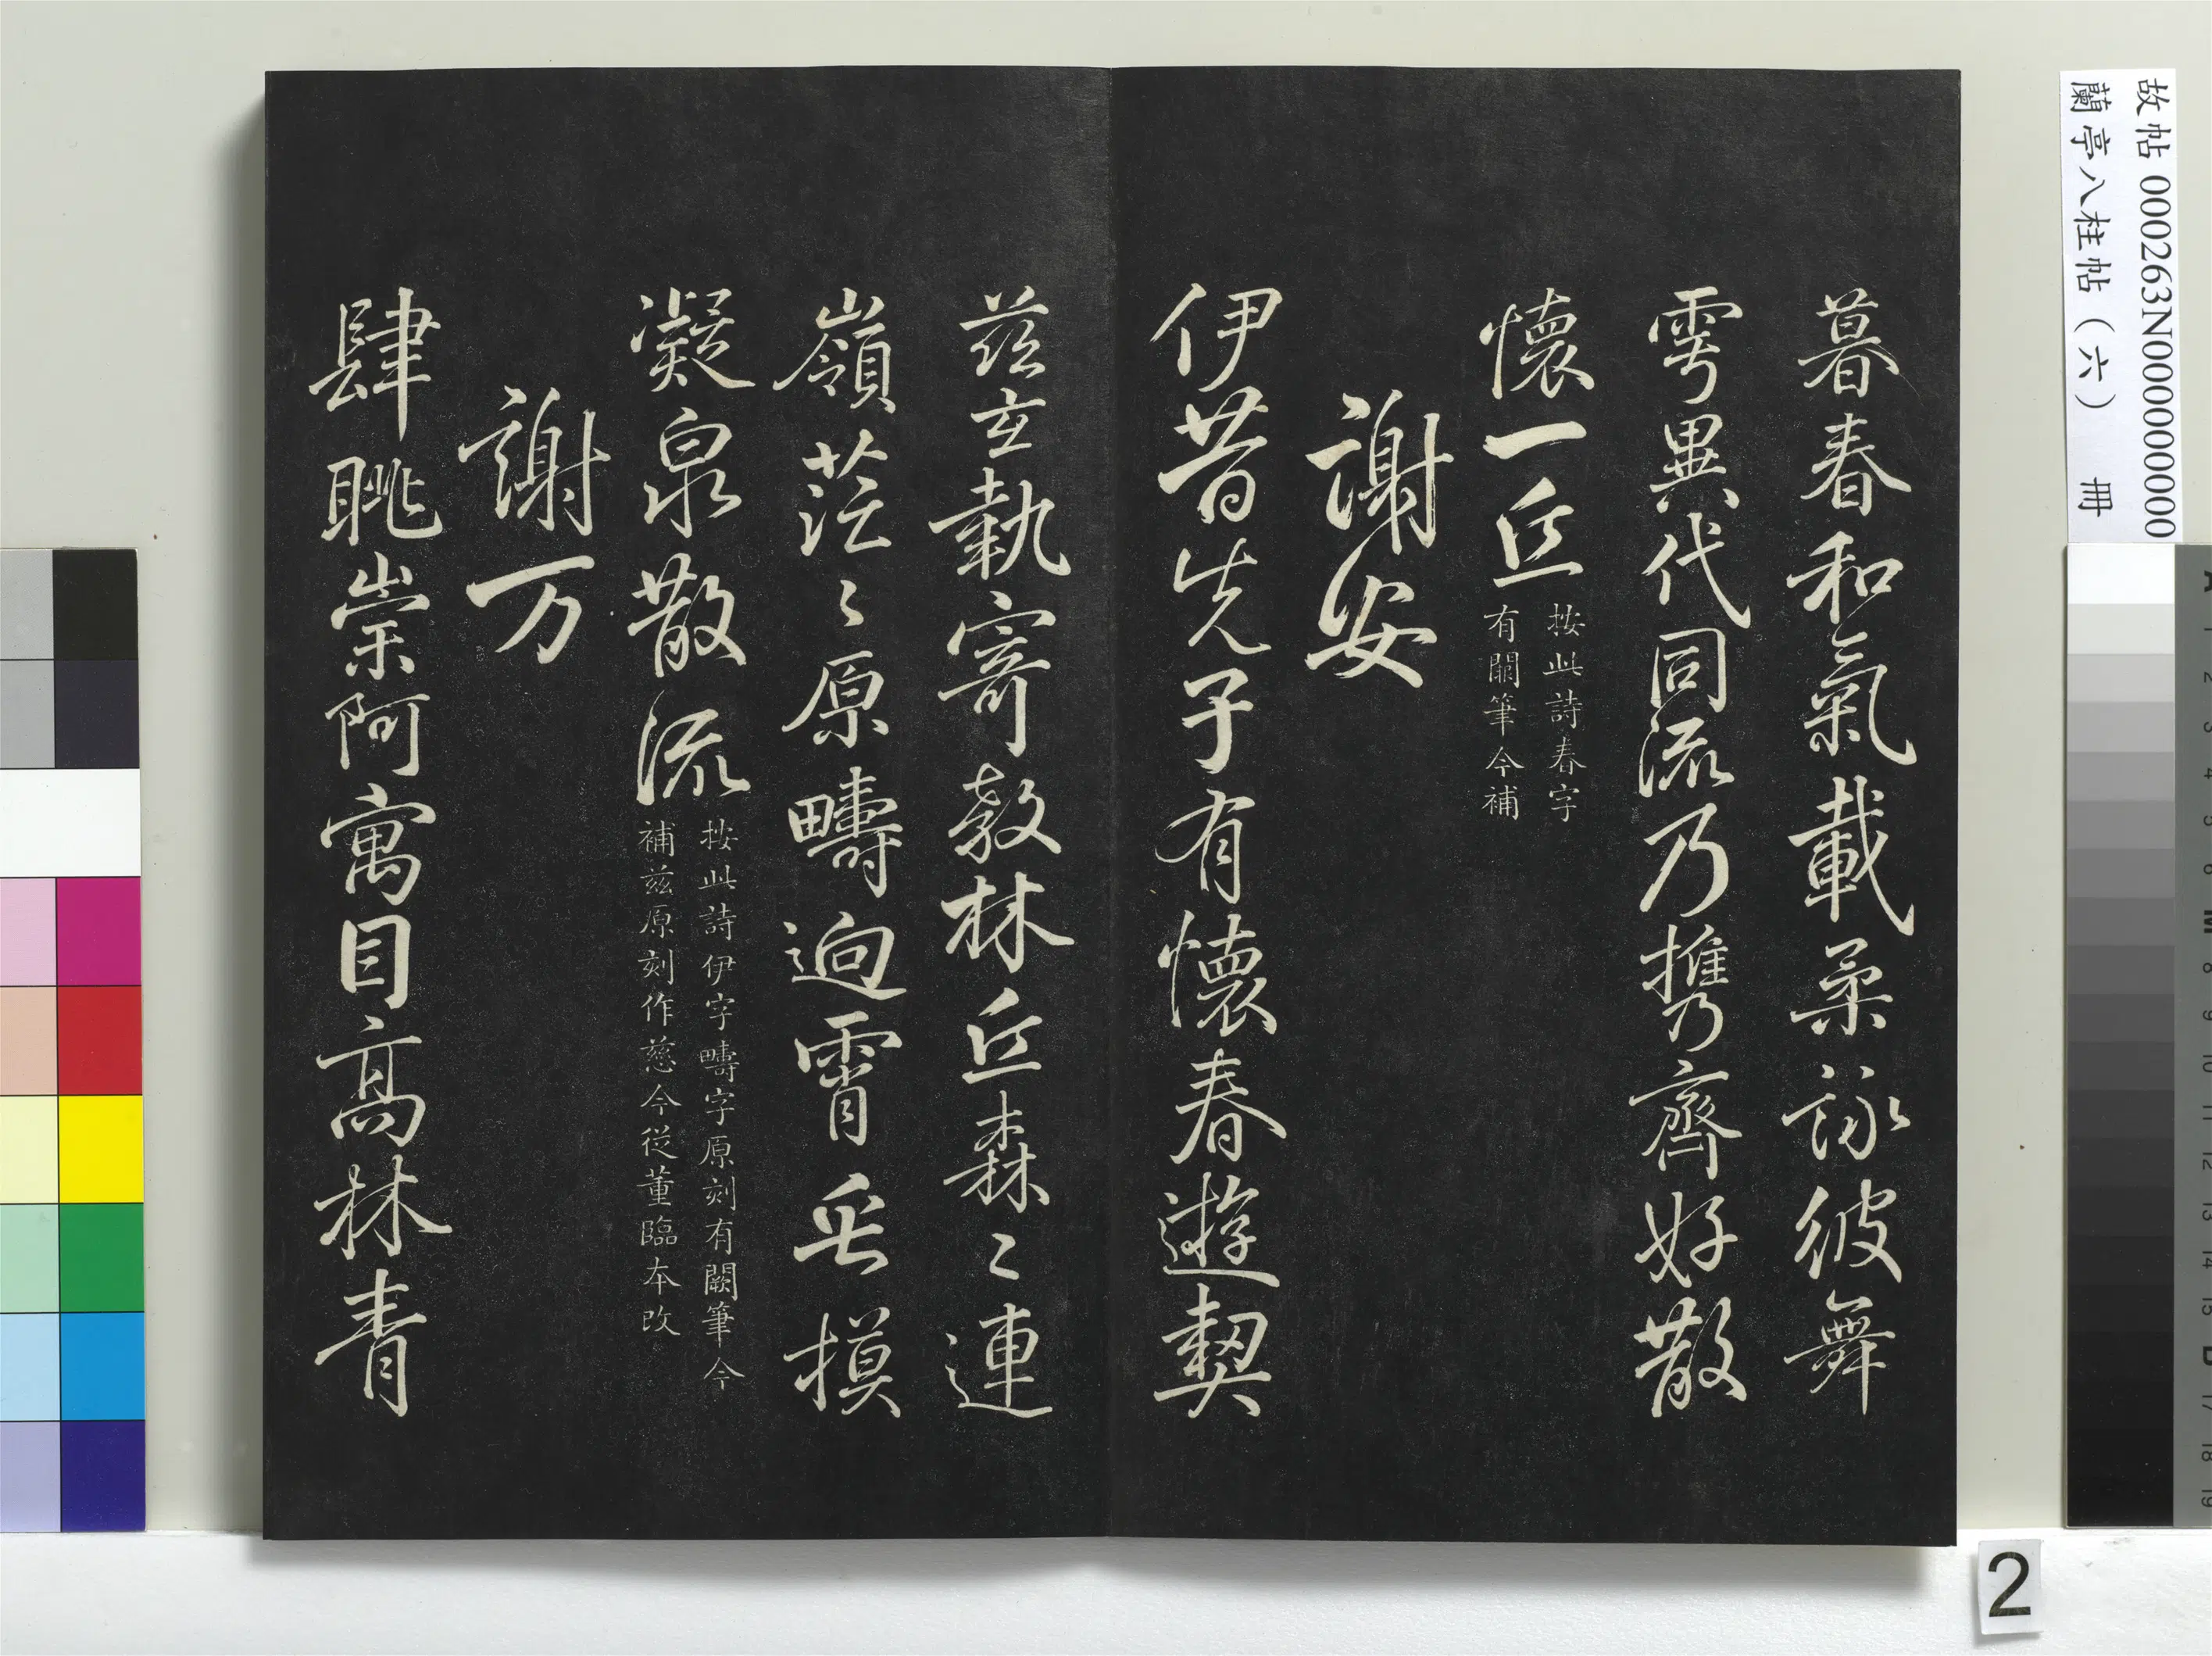 暮春和氣載柔詠彼舞
雩異代同流乃携齊好散
懷一丘
按此詩春字
有闕筆今補
謝安
伊昔先子有懷春遊契
茲玄執寄敖林丘森〻連
嶺茫〻原疇逈霄垂摸
凝泉散流
按此詩伊字疇字原刻有闕筆今
補茲原刻作慈今從董臨本改
謝万
肆眺崇阿寓目高林青
故帖 000263N000000000
蘭亭八柱帖（六） 冊
2